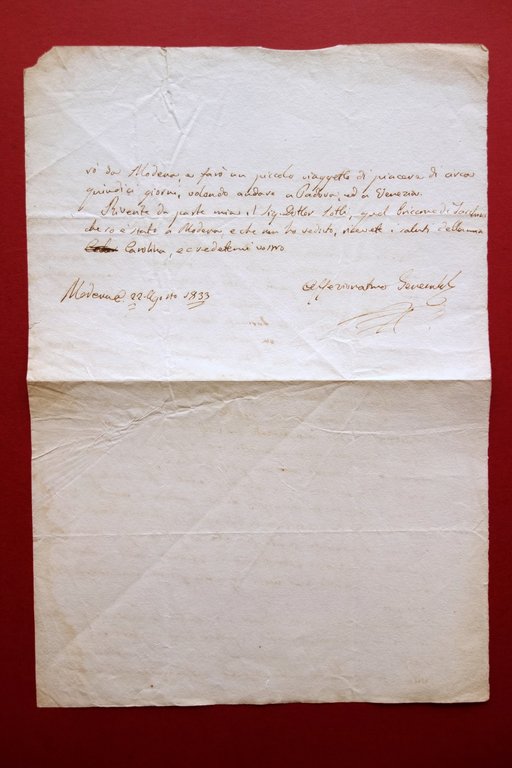 rò da Modena, e farò un piccolo viaggetto di piacere di circa
quindici giorni, volendo andare a Padova, ed a Venezia.
Riverite da parte mia il Sig. Dottor quel Briccone di
che so è stato a Modena e che non ho veduto, ricevete i saluti della mia
Carolina, e credetemi vostro
Modena 22 Agosto 1833